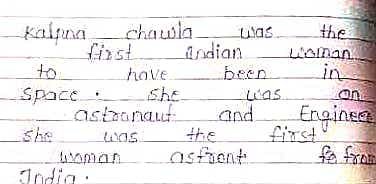 Kalpna chawla was the
first indian woman
to have been in
space. she was an
astronaut and Engineer
she was the first
woman from
India.